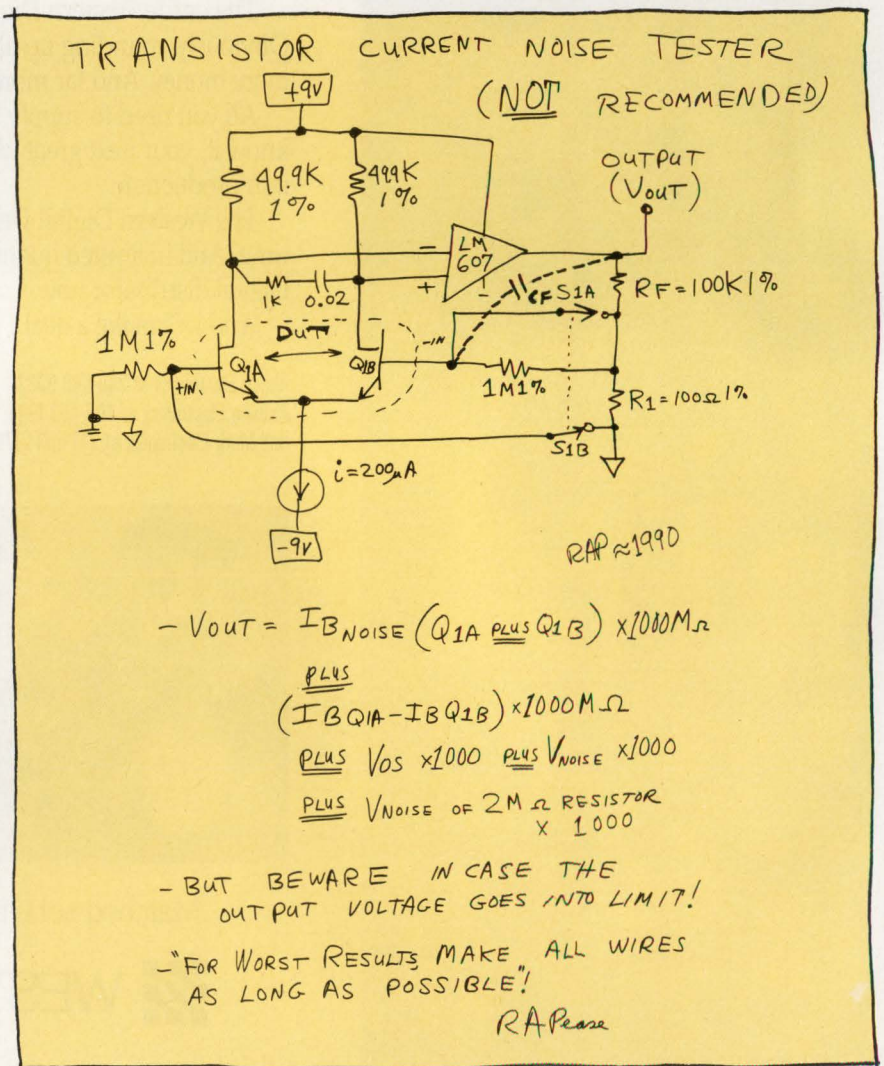 TRANSISTOR CURRENT NOISE TESTER
(NOT RECOMMENDED)
+9V
OUTPUT
(VOUT)
49.9K
1%
499K
1%
LM
607
-
+
-
1K
0.02
CF
S1A
RF=100K1%
1M1%
DUT
-IN
Q1A
Q1B
+IN
1M1%
R1=100Ω1%
S1B
i=200µA
-9V
RAP≈1990
- VOUT = IBNOISE (Q1A PLUS Q1B) ×1000MΩ
PLUS
(IBQ1A-IBQ1B)×1000MΩ
PLUS VOS ×1000 PLUS VNOISE ×1000
PLUS VNOISE OF 2MΩ RESISTOR
× 1000
- BUT BEWARE IN CASE THE
OUTPUT VOLTAGE GOES INTO LIMIT!
- "FOR WORST RESULTS MAKE ALL WIRES
AS LONG AS POSSIBLE"!
RAPease